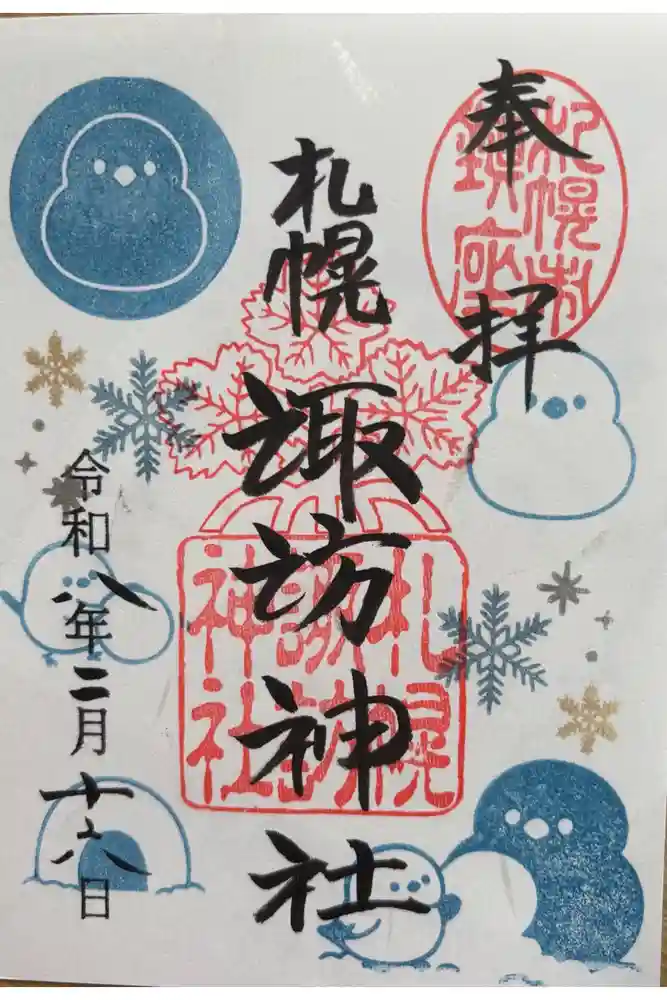 奉拝
札幌市
鎮座
札幌諏訪神社
札幌
諏訪
神社
令和八年二月十八日